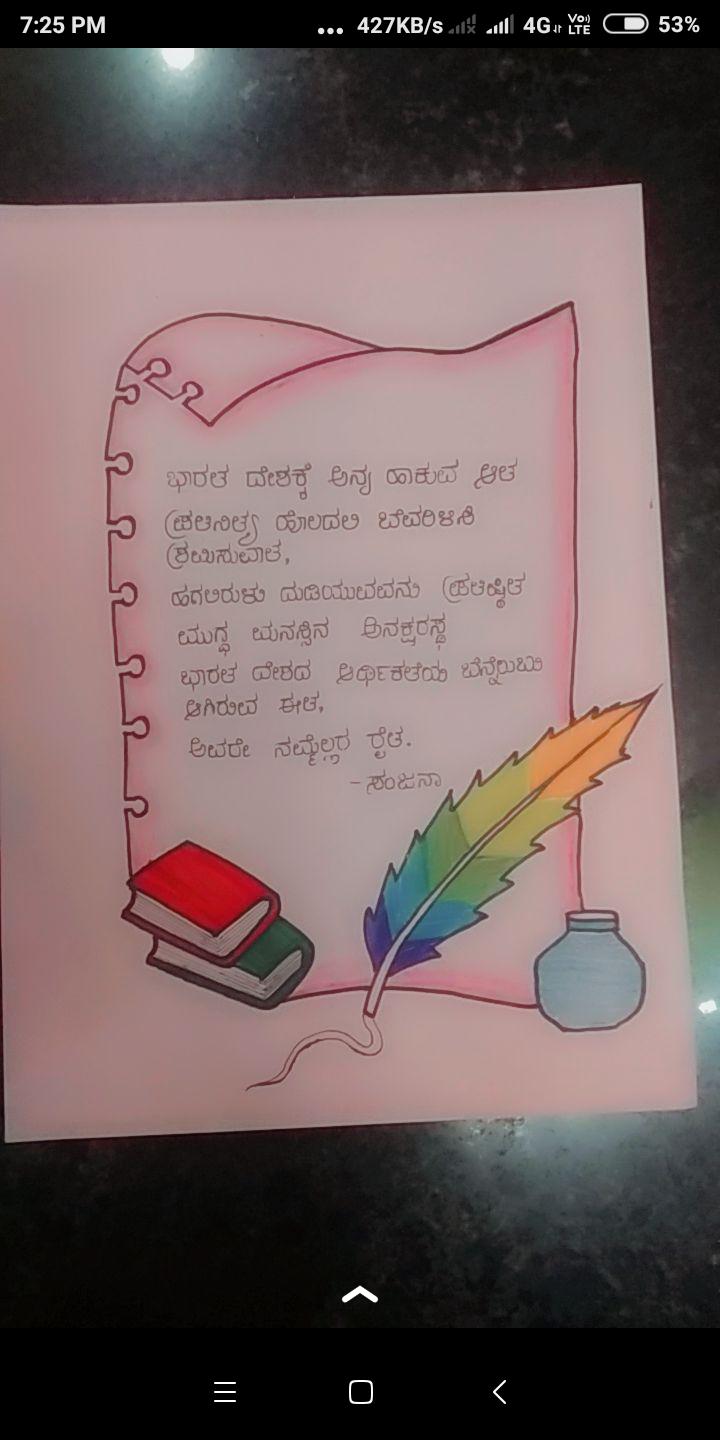 7:25 PM ... 427KB/s 4G VoLTE 53%
ಭಾರತ ದೇಶಕ್ಕೆ ಅನ್ನ ಹಾಕುವ ಆತ
ಪ್ರತಿನಿತ್ಯ ಹೊಲದಲಿ ಬೆವರಿಳಿಸಿ
ಶ್ರಮಿಸುವಾತ,
ಹಗಲಿರುಳು ದುಡಿಯುವವನು ಪ್ರತಿಷ್ಠಿತ
ಮುಗ್ಧ ಮನಸ್ಸಿನ ಅನಕ್ಷರಸ್ಥ
ಭಾರತ ದೇಶದ ಆರ್ಥಿಕತೆಯ ಬೆನ್ನೆಲುಬು
ಆಗಿರುವ ಈತ,
ಅವರೇ ನಮ್ಮೆಲ್ಲರ ರೈತ.
- ಸಂಜನಾ